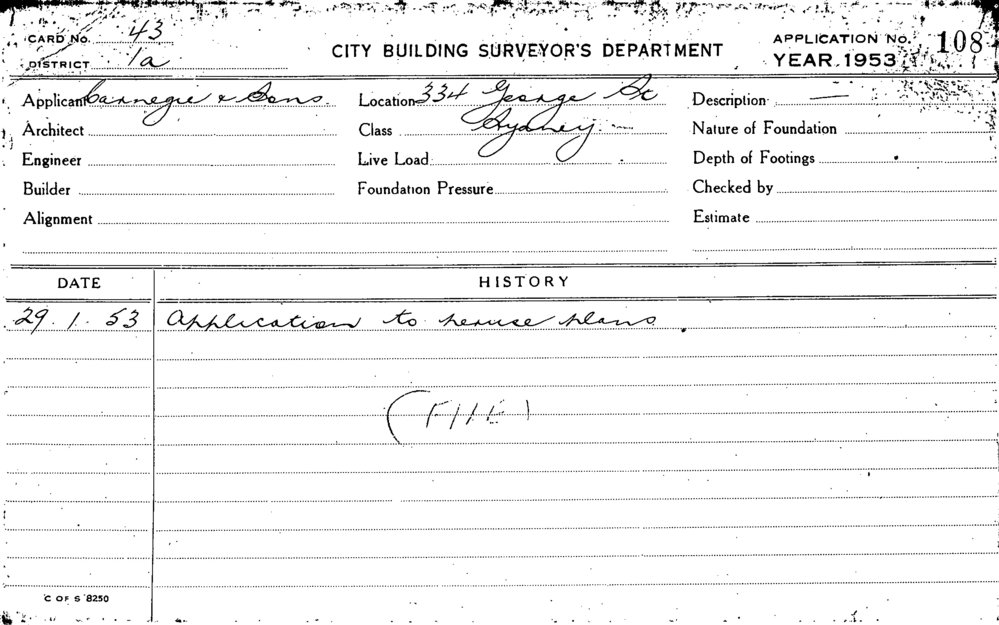 CARD No. 43
CITY BUILDING SURVEYOR'S DEPARTMENT
APPLICATION No. 108
DISTRICT 1a
YEAR 1953
Applicant Carnegie & Sons Location 334 George St Description —
Architect Class Sydney — Nature of Foundation
Engineer Live Load Depth of Footings
Builder Foundation Pressure Checked by
Alignment Estimate
DATE HISTORY
29.1.53 Application to peruse plans.
(FILE)
C OF S 8250